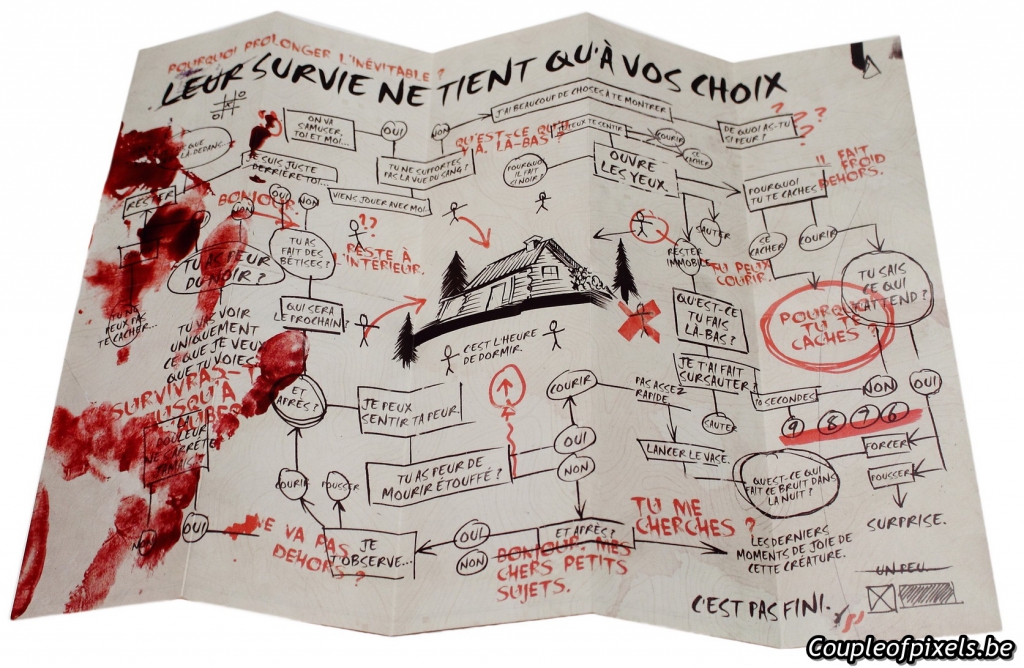 POURQUOI PROLONGER L'INÉVITABLE ?
LEUR SURVIE NE TIENT QU'À VOS CHOIX
ON VA
SAMUSER,
TOI ET MOI...
OUI
NON
J'AI BEAUCOUP DE CHOSES À TE MONTRER
TU NE SUPPORTES
PAS LA VUE DU SANG ?
QU'EST-CE QU'IL
Y A LÀ-BAS ?
TE SENTIR
COURIR
SE
CACHER
DE QUOI AS-TU
SI PEUR ?
? ? ?
LÀ-DEDANS...
JE SUIS JUSTE
DERRIÈRE TOI...
POURQUOI
IL FAIT
SI NOIR ?
OUVRE
LES YEUX.
IL FAIT
FROID
DEHORS.
POURQUOI
TU TE CACHES
BONJOUR.
OUI
NON
NON
VIENS JOUER AVEC MOI.
TU AS PEUR
DU NOIR ?
TU AS
FAIT DES
BÊTISES ?
!?
RESTE À
L'INTÉRIEUR.
SAUTER
RESTER
IMMOBILE
TU PEUX
COURIR.
SE
CACHER
COURIR
TU SAIS
CE QUI
T'ATTEND ?
QUI SERA
LE PROCHAIN ?
QU'EST-CE
TU FAIS
LÀ-BAS ?
POURQUOI
TU TE
CACHES ?
TU NE
PEUX PAS
TE CACHER...
TU VAS VOIR
UNIQUEMENT
CE QUE JE VEUX
QUE TU VOIES.
C'EST L'HEURE
DE DORMIR.
JE T'AI FAIT
SURSAUTER ?
SURVIVRAS-T
JUSQU'À
ET
APRÈS ?
JE PEUX
SENTIR TA PEUR.
COURIR
PAS ASSEZ
RAPIDE.
SAUTER
10 SECONDES
NON
OUI
9 8 7 6
LA
DOULEUR
NE S'ARRÊTE
JAMAIS ?
TU AS PEUR DE
MOURIR ÉTOUFFÉ ?
OUI
NON
LANCER LE VASE.
FORCER
QU'EST-CE QUI
FAIT CE BRUIT DANS
LA NUIT ?
POUSSER
COURIR
POUSSER
NON
OUI
NE VA PAS
DEHORS ?
JE
OBSERVE...
OUI
NON
ET APRÈS ?
BONJOUR, MES
CHERS PETITS
SUJETS.
TU ME
CHERCHES ?
LES DERNIERS
MOMENTS DE JOIE DE
CETTE CRÉATURE.
SURPRISE.
UN PEU...
C'EST PAS FINI.
Coupleofpixels.be